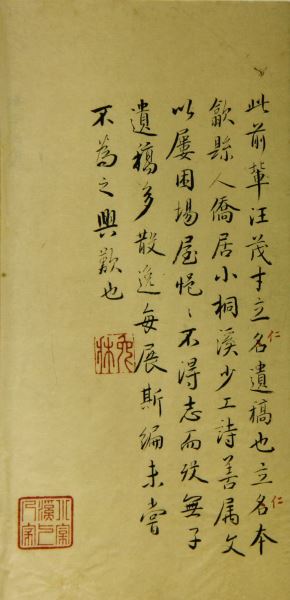 此前輩汪茂才立名遺稿也立名本
仁
仁
歙縣人僑居小桐溪少工詩善属文
以屢困場屋悒〻不得志而歿無子
遺稿多散逸每展斯編未嘗
不為之興歎也